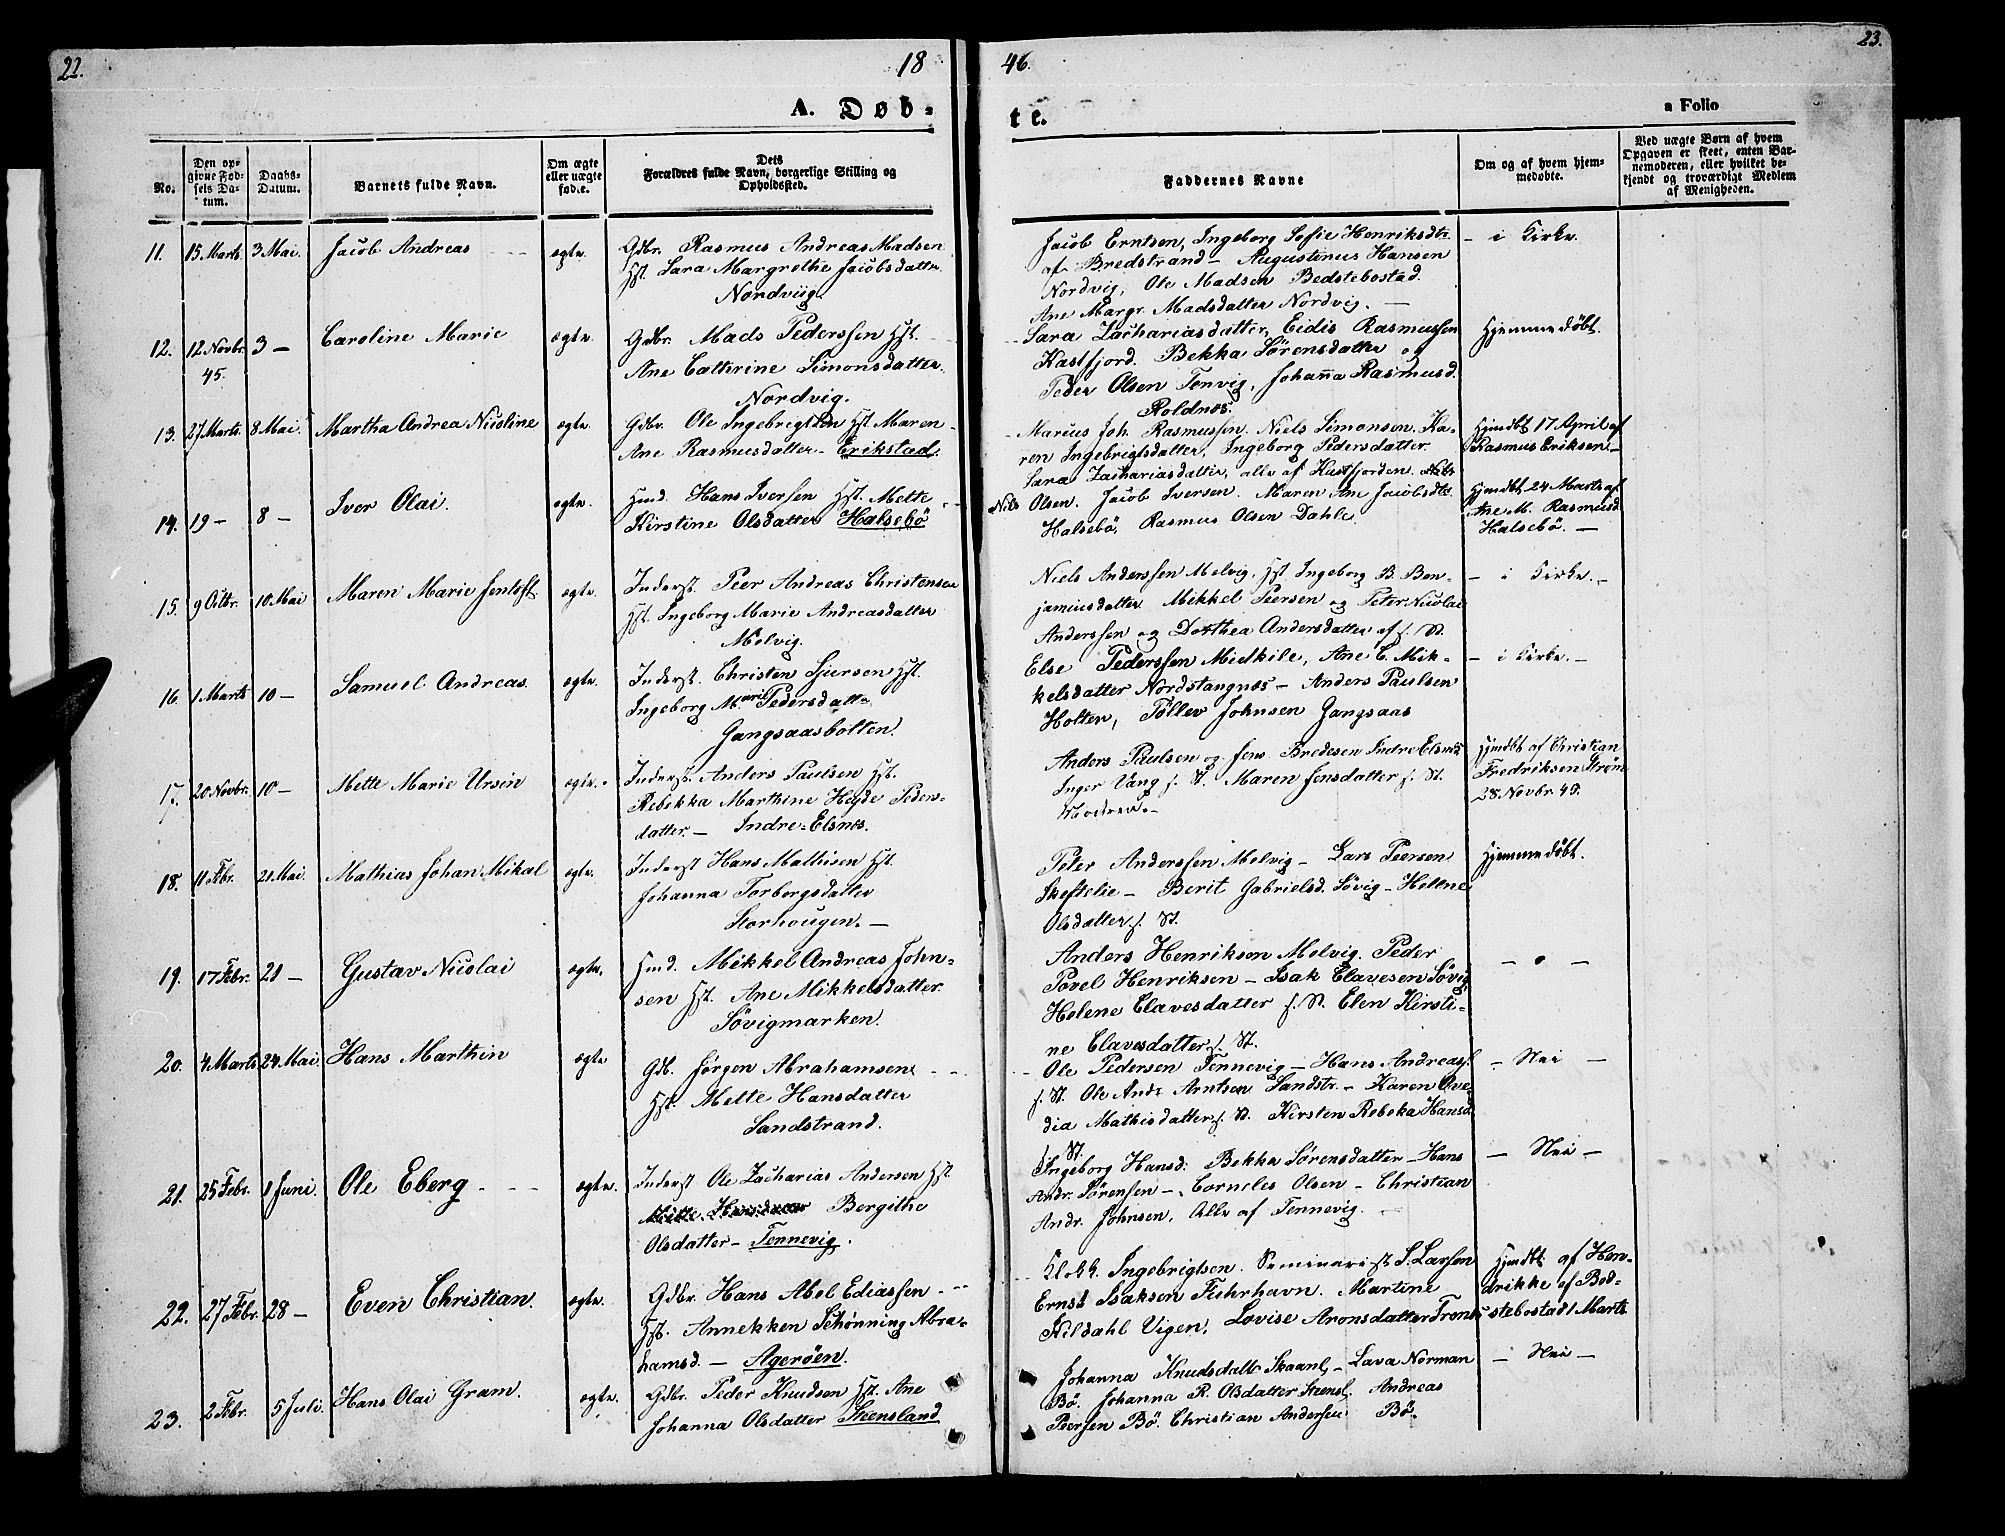 22.
18
46.
23.
A. Døb-
te.
a Folio
No.
Den op-
givne Fød-
sels Da-
tum.
Daabs-
Datum.
Barnets fulde Navn.
Om ægte
eller uægte
født.
Dets
Forældres fulde Navn, borgerlige Stilling og
Opholdssted.
Faddernes Navne
Om og af hvem hjem-
medøbte.
Ved uægte Børn af hvem
Opgaven er skeet, enten Bar-
nemoderen, eller hvilket be-
kjendt og troværdigt Medlem
af Menigheden.
11. 15 Marts 3 Mai. Jacob Andreas ægte.
Gdbr. Rasmus Andreas Madsen
Hst. Sara Margrethe Jacobsdatter
Nordviig.
Jacob Erntsen, Ingeborg Sofie Henriksdtr.
af Bredstrand – Augustinus Hansen
Nordvig, Ole Madsen Bedstebostad.
Ane Margr. Madsdatter Nordvig. –
– i Kirke.
12. 12 Novbr. 45. 3 – Caroline Marie ægte.
Gdbr. Mads Pederssen Hst.
Ane Catterine Simonsdatter.
Nordvig.
Sara Zachariasdatter, Eidis Rasmussen
Kastfjord. Bekka Sørensdatter og
Peder Olsen Tenvig, Johanna Rasmusd.
Roldnæs.
Hjemmedøbt.
13. 27 Marts. 8 Mai. Martha Andrea Nicoline ægte.
Gdbr. Ole Ingebrigtsen Hst. Maren
Ane Rasmusdatter – Erikstad.
Marius Joh. Rasmussen. Niels Simonsen. Ka-
ren Ingebrigtsdatter, Ingeborg Pedersdatter
Sara Zachariasdatter, alle af Kastfjorden.
Hjmdbt 17 April af
Rasmus Eriksen –
14. 19 – 8 – Iver Olai. ægte.
Hmd. Hans Iversen Hst. Mette
Kirstine Olsdatter Halsebö
Nils Olsen. Jacob Iversen. Maren Ane Jacobsdtr.
Halsebö, Rasmus Olsen Dahle.
Hjmdbt 24 Marts af
Ane M. Rasmusd
Halsebö. –
15. 9 Octbr. 10 Mai Maren Marie Jentoft ægte.
Inderst. Peer Andreas Christensen
Hst. Ingeborg Marie Andreasdatter
Melvig.
Niels Anderssen Melvig, Hst. Ingeborg B. Ben-
jaminsdatter Mikkel Peersen og Peter Nicolai
Anderssen og Dorthea Andersdatter af s. St.
– i Kirke. –
16. 1 Marts 10 – Samuel Andreas. ægte.
Inderst. Christen Sjursen Hst.
Ingeborg Marie Pedersdatt.
Gangsaasbotten.
Else Pederssen Midkile, Ane C. Mik-
kelsdatter Nordstangnæs – Anders Paulsen
Holten, Töllev Johnsen Gangsaas
– i Kirke. –
17. 20 Novbr. 10 – Mette Marie Ursin ægte.
Inderst. Anders Paulsen Hst.
Rebekka Marthine Heyde Peders-
datter. – Indre-Elsnæs.
Anders Paulsen og Jens Bredesen Indre Elsnæs
Inger Vang s. St. Maren Jensdatter s. St.
Moderen. –
Hjmdbt af Christian
Fredriksen Strøm
28. Novbr 45.
18. 11 Febr. 21 Mai. Mathias Johan Mikal ægte.
Inderst Hans Mathisen Hst.
Johanna Torbergsdatter
Storhougen. –
Peter Anderssen Melvig – Lars Peersen
Skeftelie – Berit Gabrielsd. Sövig – Helene
Olsdatter s. St.
Hjemmedøbt.
19. 17 Febr. 21 – Gustav Nicolai ægte.
Hmd. Mikkel Andreas John-
sen Hst. Ane Mikkelsdatter.
Søvigmarken.
Anders Henriksen Melvig. Peder
Povel Henriksen – Isak Clavesen Søvig
Helene Clavesdatter s. St. Elen Kirsti-
ne Clavesdatter s. St.
– " –
20. 4 Marts 24 Mai. Hans Marthin ægte
Gdb. Jørgen Abrahamsen
Hst. Mette Hansdatter
Sandstrand.
Ole Pedersen Tennevig – Hans Andreas
s. St. Ole Andr Arntsen Sandstr. – Karen Ove-
dia Mathisdatter s. St. Kirsten Rebeka Hansd.
s. St.
– Nei –
21. 25 Febr. 1 Juni. Ole Eberg ægte.
Inderst Ole Zacharias Andersen Hst.
Bergithe
Olsdatter – Tennevig.
Ingeborg Hansd: Bekka Sørensdatter – Hans
Andr. Sørensen – Cornelis Olsen – Christian
Andr. Johnsen, Alle af Tennevig.
– Nei –
22. 27 Febr. 28 – Even Christian. ægte.
Gdbr. Hans Abel Ediassen
Hst. Annekken Schønning Abra-
hamsd. – Agerøen.
Klokk. Ingebrigtsen. Seminarist S. Larsen
Ernst Isaksen Fuhrhavn. Martine
Hildahl Vigen. Lovise Aronsdatter
Hjmdbt af Hen-
drikke af Bed-
stebostad 1 Marts
23. 2 Febr. 5 Juli. Hans Olai Gram. ægte.
Gdbr. Peder Knudsen Hst. Ane
Johanna Olsdatter Steensland
Johanna Knudsdatt Skaanl. – Lava Norman
Bø. Johanna R. Olsdatter Steensl. Andreas
Peersen Bø. Christian Andersen Bø.
– Nei –